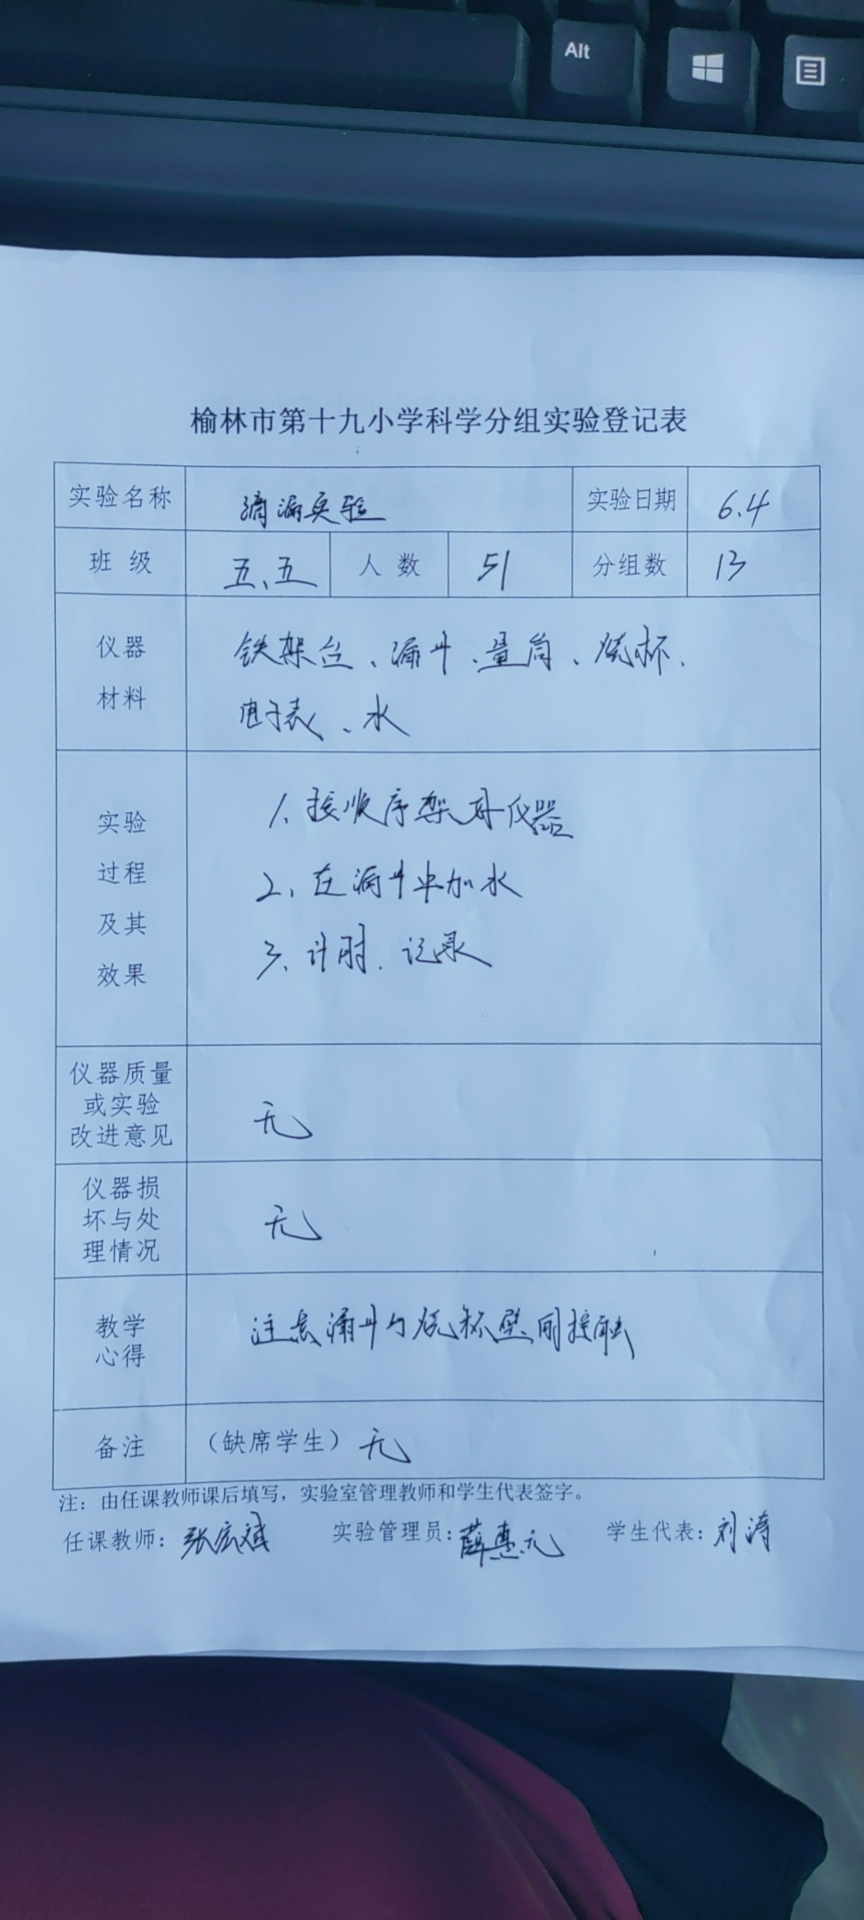 Alt
榆林市第十九小学科学分组实验登记表
实验名称 滴漏实验 实验日期 6.4
班 级 五、五 人 数 51 分组数 13
仪器
材料
铁架台、漏斗、量筒、烧杯、
电子表、水
实验
过程
及其
效果
1、按顺序架好仪器
2、在漏斗中加水
3、计时、记录
仪器质量
或实验
改进意见
无
仪器损
坏与处
理情况
无
教学
心得
注意漏斗与烧杯壁间接触
备注 （缺席学生）无
注：由任课教师课后填写，实验室管理教师和学生代表签字。
任课教师：张宏斌 实验管理员：薛惠元 学生代表：刘涛